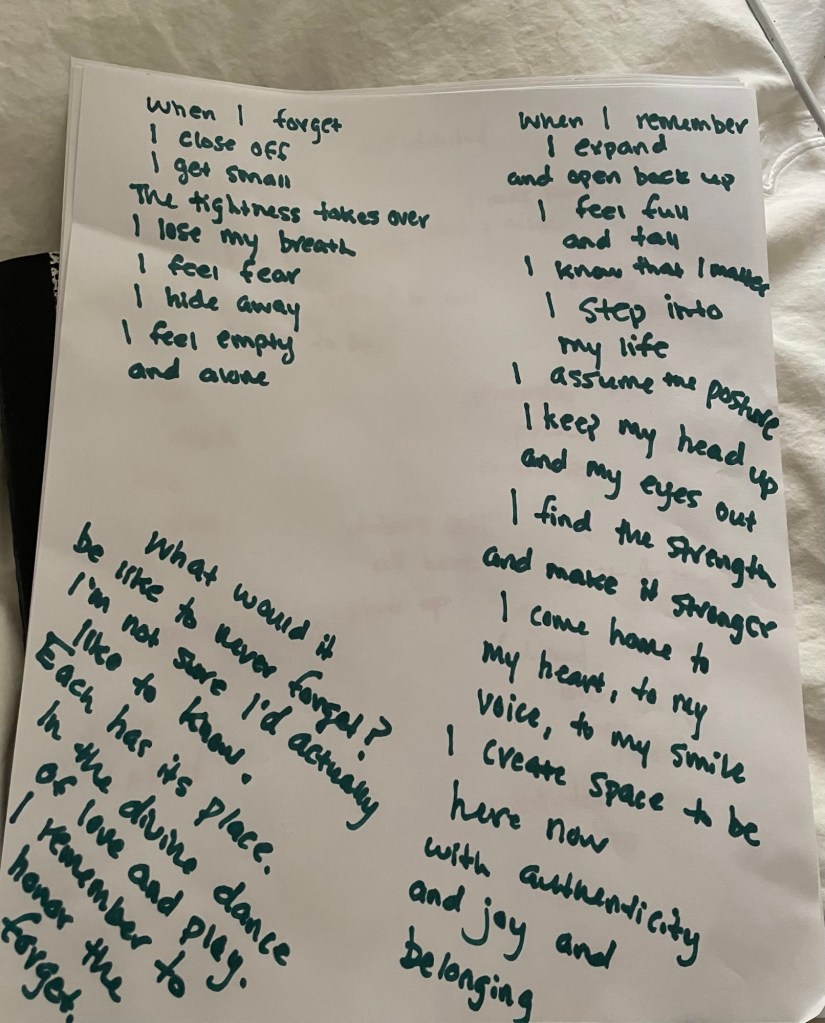 When I forget
I close off
I get small
The tightness takes over
I lose my breath
I feel fear
I hide away
I feel empty
and alone
When I remember
I expand
and open back up
I feel full
and tall
I know that I matter
I step into
my life
I assume the posture
I keep my head up
and my eyes out
I find the strength
and make it stronger
I come home to
my heart, to my
voice, to my smile
I create space to be
here now
with authenticity
and joy and
belonging
What would it
be like to never forget?
I'm not sure I'd actually
like to know.
Each has its place.
In the divine dance
of love and play.
I remember to
honor the
forget.